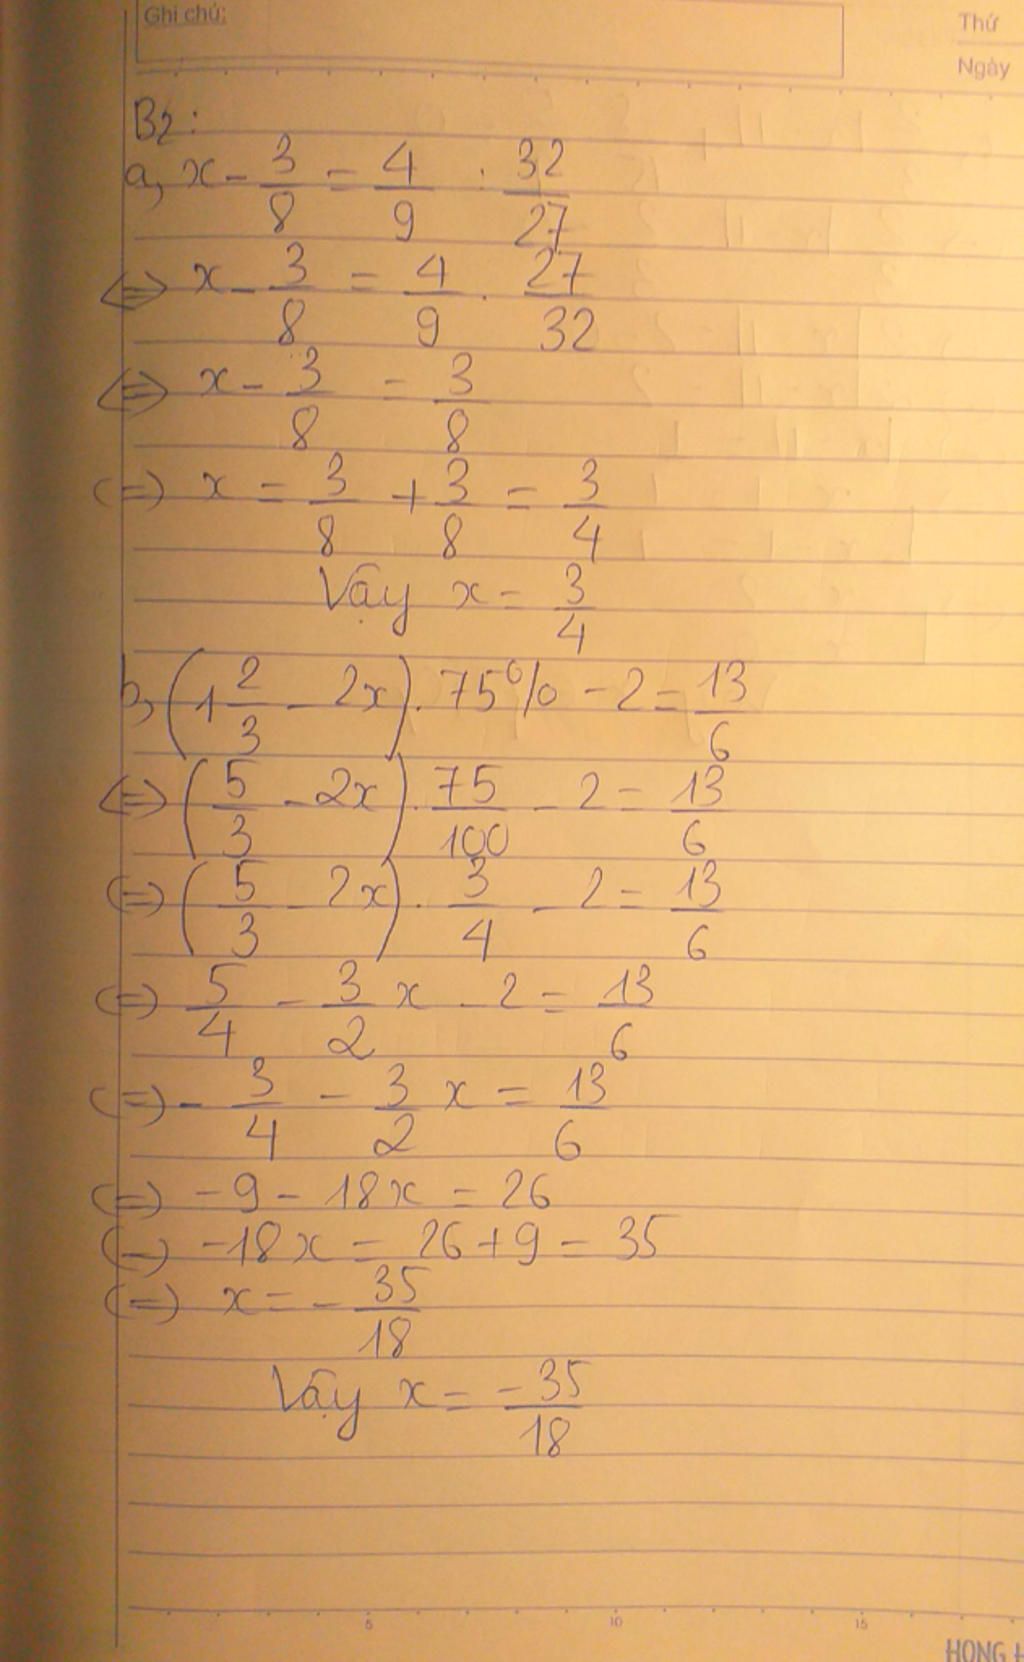 Ghi chú:
Thứ
Ngày
B2:
a, x - 3/8 = 4/9 : 32/27
<=> x - 3/8 = 4/9 . 27/32
<=> x - 3/8 = 3/8
(=) x = 3/8 + 3/8 = 3/4
Vậy x = 3/4
b, (1 2/3 - 2x) . 75% - 2 = 13/6
<=> (5/3 - 2x) . 75/100 - 2 = 13/6
(=) (5/3 - 2x) . 3/4 - 2 = 13/6
(=) 5/4 - 3/2 x - 2 = 13/6
(=) - 3/4 - 3/2 x = 13/6
(=) -9 - 18x = 26
(=) -18x = 26 + 9 = 35
(=) x = - 35/18
Vậy x = -35/18
5 10 15
HONG H